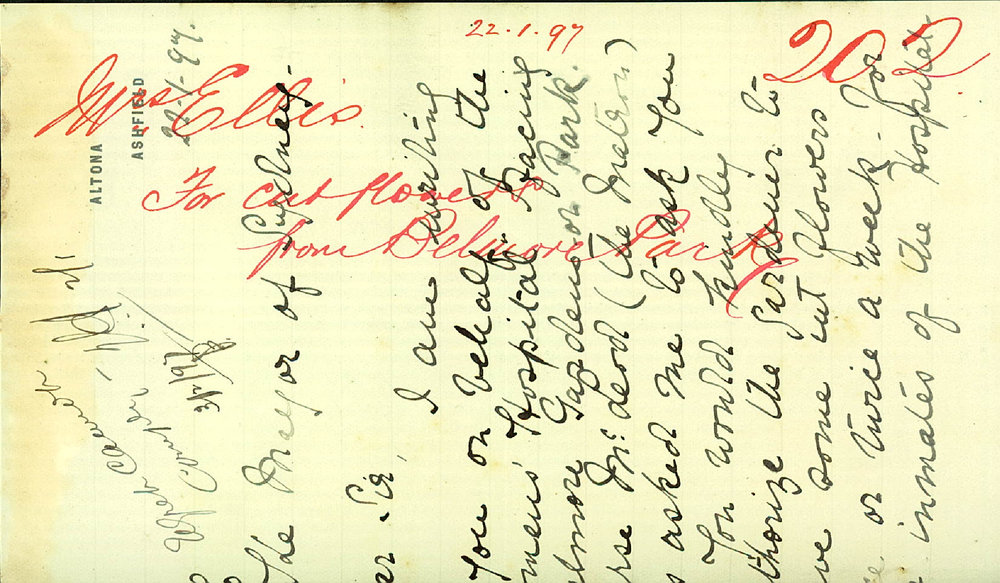 22.1.97
202
Mrs. Ellis.
For cut flowers
from Belmore Park
ALTONA
ASHFIELD
22-1-97.
The Mayor of Sydney.
ar Sir,
I am writing
You on behalf of the
mens Hospital facing
lmore Gardens or Park.
rse McLeod (the Matron)
s asked me to ask You
You would kindly
thorize the Gardener to
ve some cut flowers
or twice a week. for
inmates of the Hospital
3/2/97